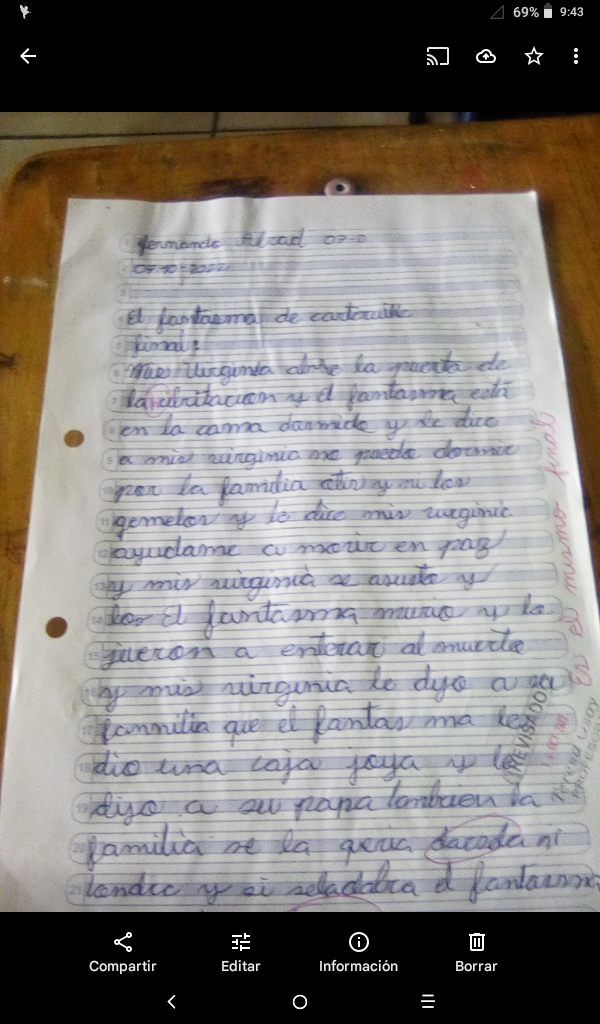 69% 9:43
Fernando
El fantasma de
final:
mis virginia abre la puerta de
la abitacion y el fantasma está
en la cama dormido y le dice
a mis virginia no puedo dormir
por la familia otis y ni los
gemelos y le dice mis virginia
ayudame a morir en paz
y mis virginia se asusto y
El fantasma murio y lo
fueron a enterar al muerto
y mis virginia le dijo a su
familia que el fantas ma le
dio una caja joya y le
dijo a su papa tambien la
familia se la qeria
y si el fantasma
es el mismo final
REVISADO
Compartir Editar Información Borrar